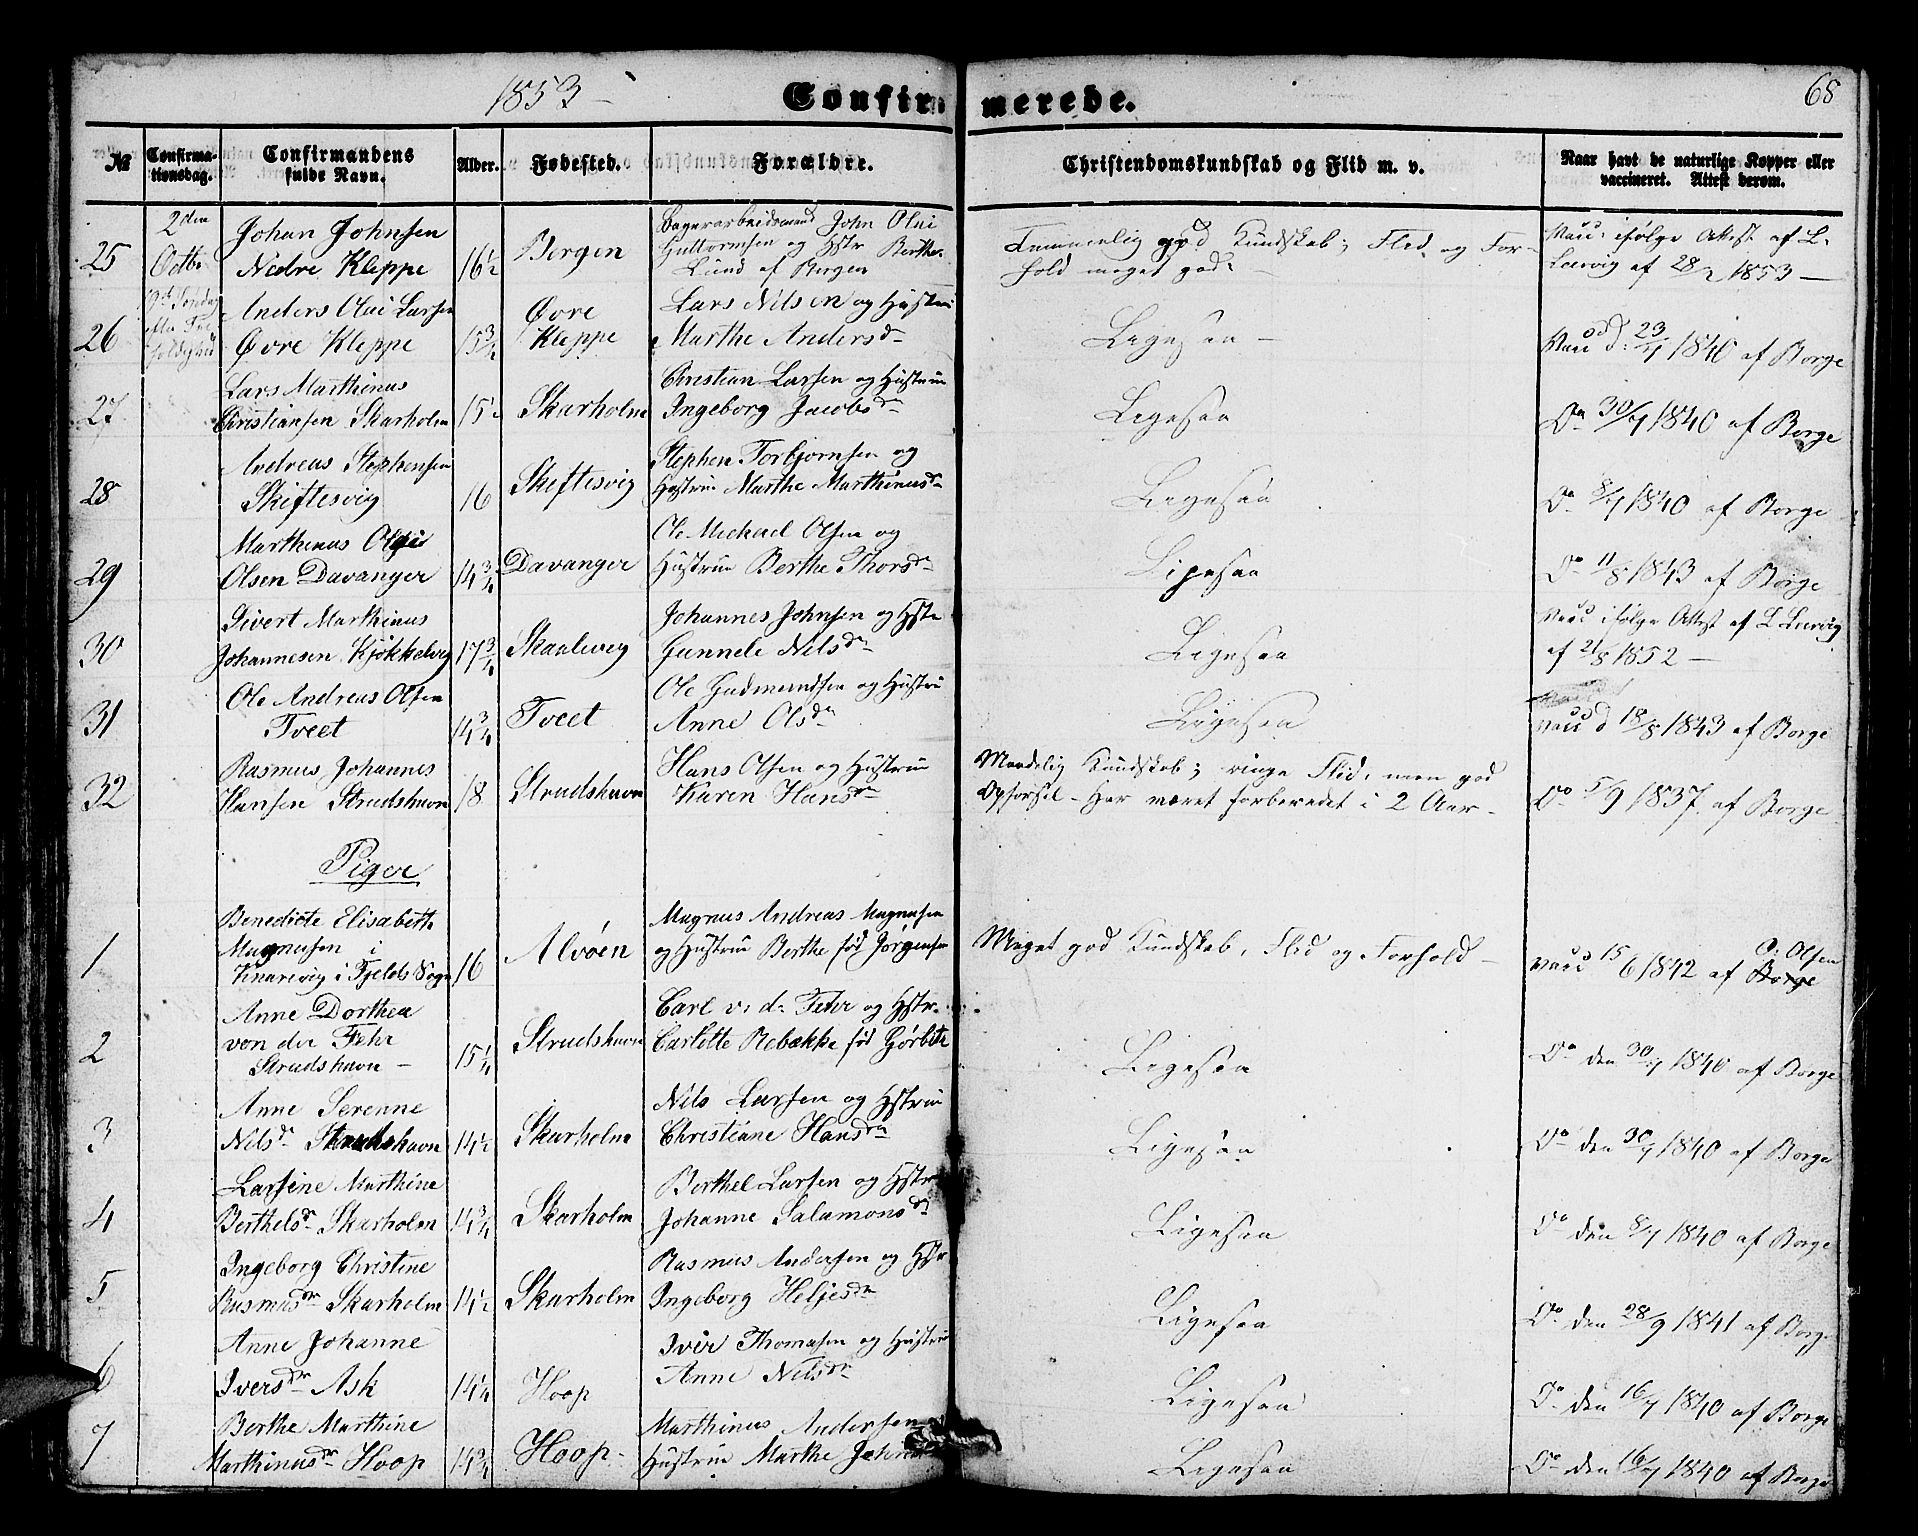 1853
Confirmerede.
68
№
Confirma-
tionsdag.
Confirmandens
fulde Navn.
Alder.
Fødested.
Forældre.
Christendomskundskab og Flid m. v.
Naar havt de naturlige Kopper eller
vaccineret. Attest derom.
25
2den
Octbr
Johan Johnsen
Nedre Kleppe
16½
Bergen
John Olai
Guttormsen og Hstr Berthe
Lund af Bergen
Temmelig god Kundskab; Flid og For-
hold meget god.
Vacc. ifølge Attest af L.
Lærvig af 28/2 1853 —
26
19de Søndag
efter Tre-
foldighed
Anders Olai Larsen
Øvre Kleppe
15¾
Øvre
Kleppe
Lars Nilsen og Hustru
Marthe Andersdr
Ligesaa —
Vacc. d. 23/7 1840 af Borge
27
Lars Marthinus
Christiansen Skarholm
15½
Skarholm
Christian Larsen og Hustrue
Ingeborg Jacobsdr
Ligesaa
Do 30/7 1840 af Borge
28
Andreas Stephensen
Skiftesvig
16
Skiftesvig
Stephen Torbjørnsen og
Hustrue Marthe Marthinusdr
Ligesaa
Do 8/7 1840 af Borge
29
Marthinus Olai
Olsen Davanger
14¾
Davanger
Ole Michael Olsen og
Hustrue Berthe Thorsdr
Ligesaa
Do 11/8 1843 af Borge
30
Sivert Marthinus
Johannesen Kjøkkelvig
17¾
Skaalevig
Johannes Johnsen og Hstr
Gunnele Nilsdr
Ligesaa
Vacc ifølge Attest af L Lærvig
af 21/8 1852 —
31
Ole Andreas Olsen
Tveet
14¾
Tveet
Ole Gudmundsen og Hustru
Anne Olsdr
Ligesaa
Vacc d 18/8 1843 af Borge
32
Rasmus Johannes
Hansen Strudshavn
18
Strudshavn
Hans Olsen og Hustrue
Karen Hansdr
Maadelig Kundskab; ringe Flid, men god
Opførsel — Har været forberedet i 2 Aar —
Do 5/9 1837 af Borge
Piger
1
Benedicte Elisabeth
Magnusen i
Knarrevig i Fjelds Sogn
16
Alvøen
Magnus Andreas Magnusen
og Hustrue Berthe fød Jørgensen
Meget god Kundskab, Flid og Forhold —
O. Olsen
Vacc 15/6 1842 af Borge
2
Anne Dorthea
von der Fehr
Strudshavn —
15¼
Strudshavn
Carl v. d. Fehr og Hstr
Carlotte Rebække fød
Ligesaa
Do den 30/7 1840 af Borge
3
Anne Serenne
Nilsdr Strudshavn
14½
Skarholm
Nils Larsen og Hstrue
Christiane Hansdr
Ligesaa
Do den 30/7 1840 af Borge
4
Larsine Marthine
Berthelsdr Skarholm
14¾
Skarholm
Berthel Larsen og Hstr
Johanne Salamonsdr
Ligesaa
Do den 8/7 1840 af Borge
5
Ingeborg Christine
Rasmusdr Skarholm
14½
Skarholm
Rasmus Andersen og Hstr
Ingeborg Heljesdr
Ligesaa
Do den 28/9 1841 af Borge
6
Anne Johanne
Iversdr Ask
14¼
Hoop
Iver Thomasen og Hustrue
Anne Nilsdr
Ligesaa
Do den 16/7 1840 af Borge
7
Berthe Marthine
Marthinusdr Hoop
14¾
Hoop —
Marthinus Andersen
Hustrue Marthe
Ligesaa
Do den 16/7 1840 af Borge